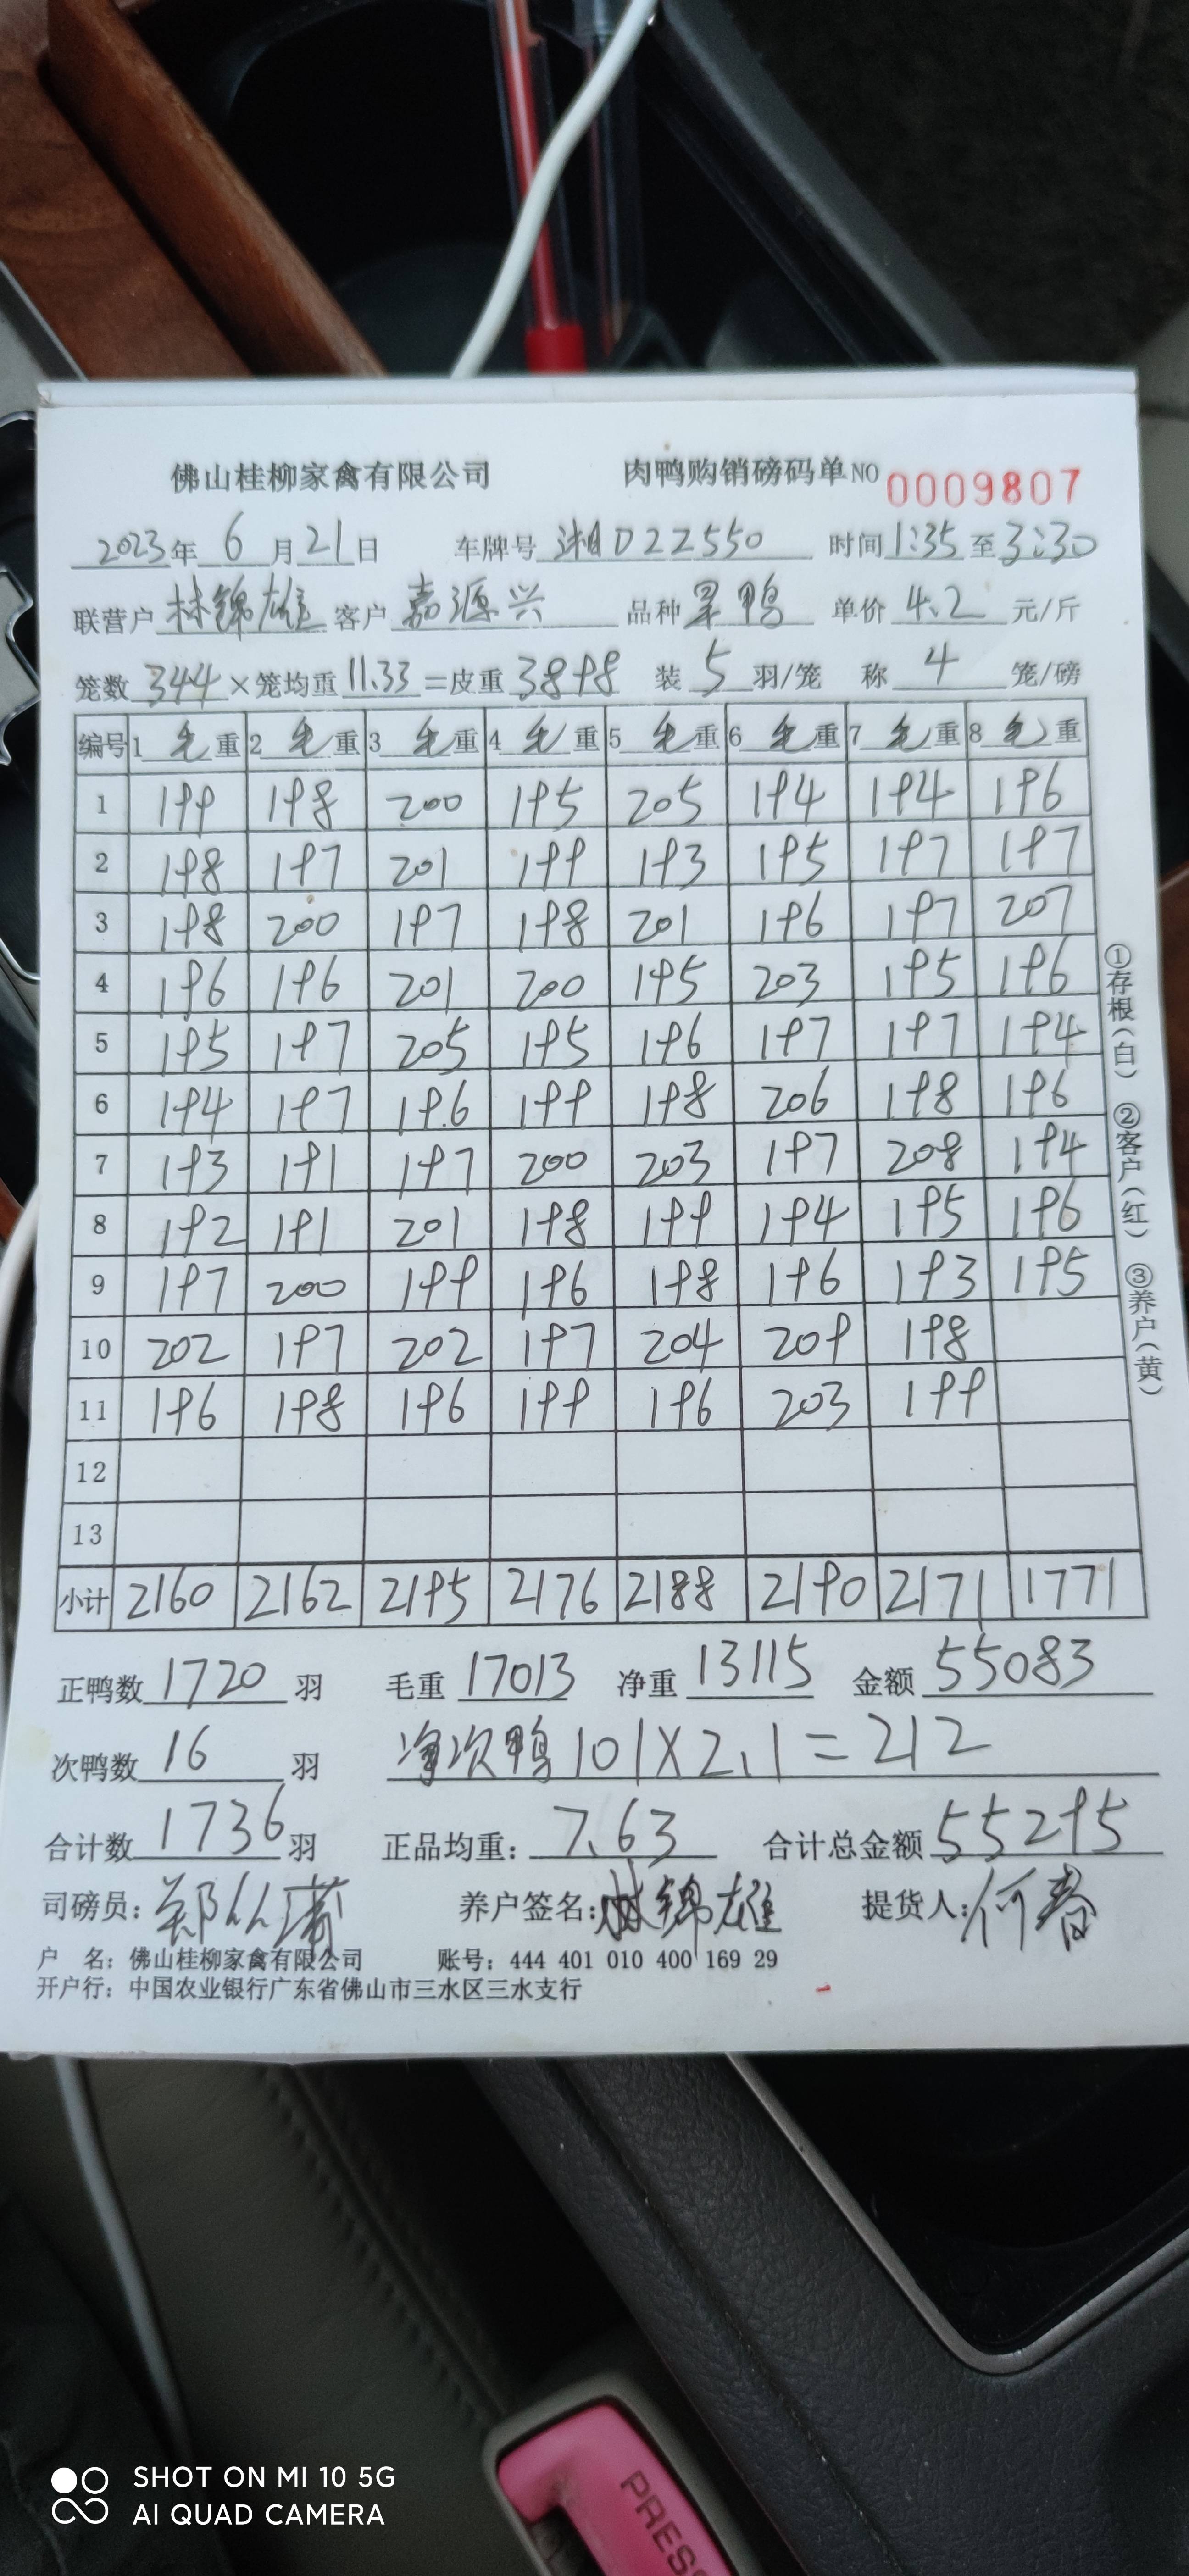 佛山桂柳家禽有限公司 肉鸭购销磅码单 NO 0009807
2023年 6 月 21 日 车牌号 湘D2Z550 时间 1:35 至 3:30
联营户 林锦雄 客户 嘉源兴 品种 单价 4.2 元/斤
笼数 344 ×笼均重 11.33 =皮重 3898 装 5 羽/笼 称 4 笼/磅
编号 1 毛重 2 毛重 3 毛重 4 毛重 5 毛重 6 毛重 7 毛重 8 毛重
1 199 198 200 195 205 194 194 196
2 198 197 201 199 193 195 197 197
3 198 200 197 198 201 196 197 207
4 196 196 201 200 195 203 195 196
5 195 197 205 195 196 197 197 194
6 194 197 196 199 198 206 198 196
7 193 191 197 200 203 197 208 194
8 192 191 201 198 199 194 195 196
9 197 200 199 196 198 196 193 195
10 202 197 202 197 204 209 198
11 196 198 196 199 196 203 199
12
13
小计 2160 2162 2195 2176 2188 2190 2171 1771
正鸭数 1720 羽 毛重 17013 净重 13115 金额 55083
次鸭数 16 羽 净次鸭101X2.1=212
合计数 1736 羽 正品均重: 7.63 合计总金额 55295
司磅员: 养户签名: 林锦雄 提货人: 何春
户 名: 佛山桂柳家禽有限公司 账号: 444 401 010 400 169 29
开户行: 中国农业银行广东省佛山市三水区三水支行
①存根(白) ②客户(红) ③养户(黄)
PRESS
SHOT ON MI 10 5G
AI QUAD CAMERA